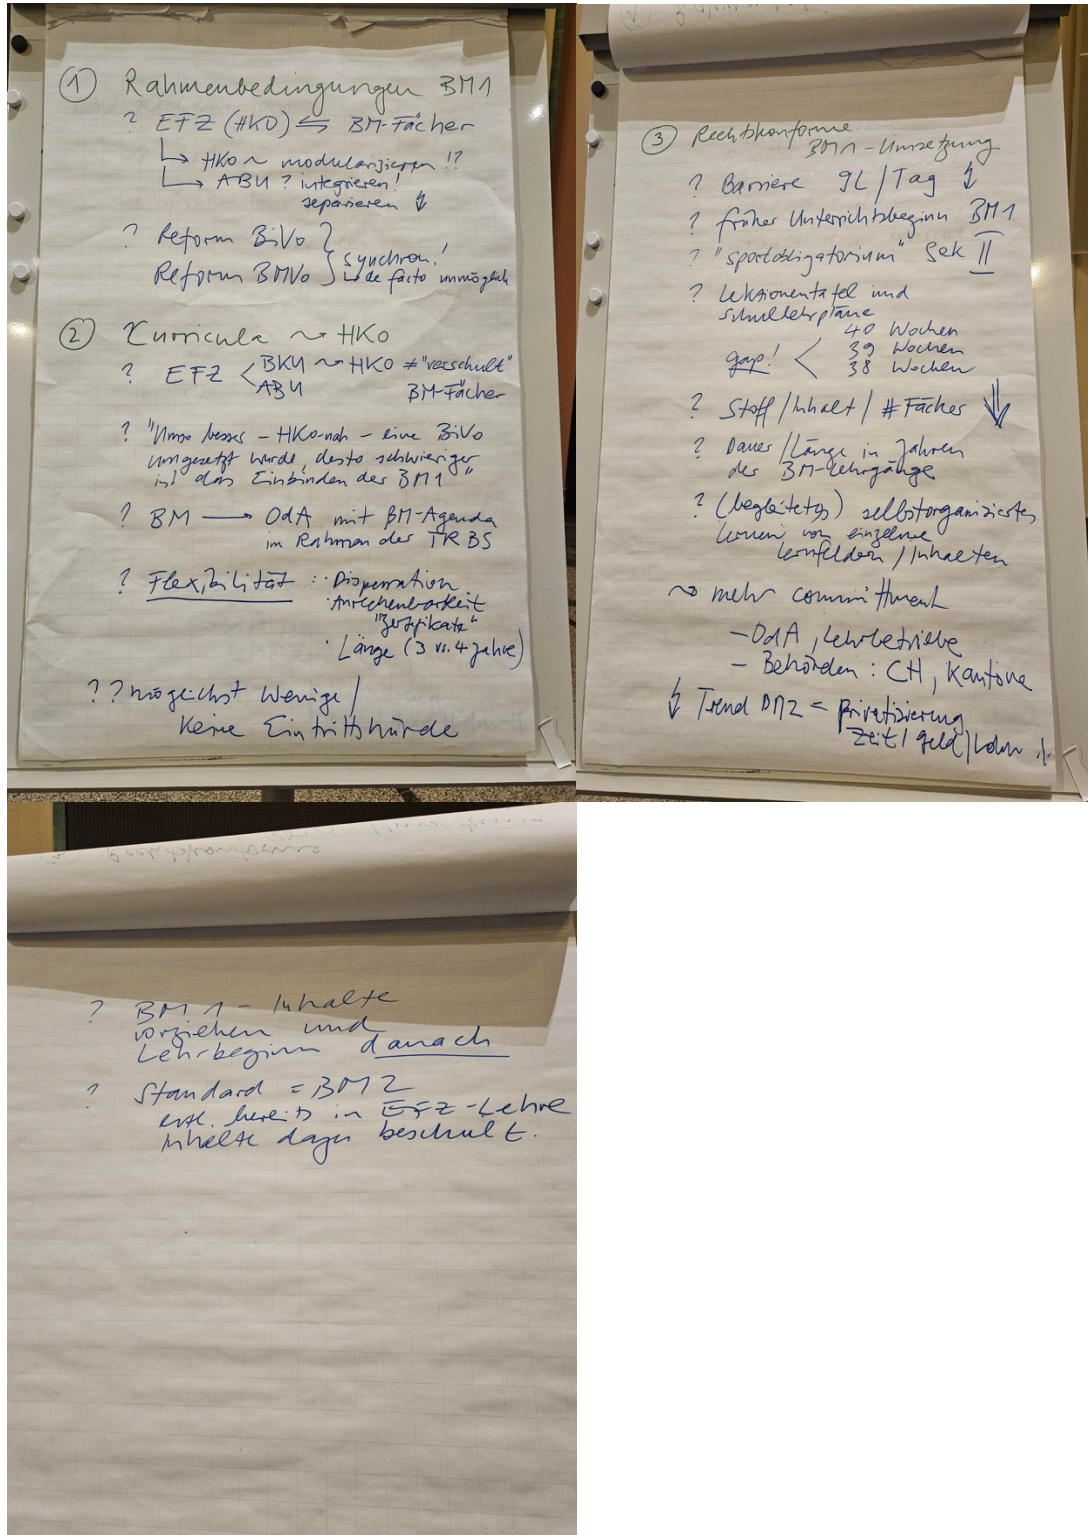 ① Rahmenbedingungen BM1
? EFZ (HKO) ⇆ BM-Fächer
↳ HKO ~ modularisieren !?
↳ ABU ? integrieren!
separieren ↯
? Reform BiVo } synchron!
Reform BMVo } ↳ de facto unmöglich
② Curricula ~> HKO
? EFZ < BKU ~> HKO ≠ "verschult"
ABU BM-Fächer
? "Umso besser – HKO-nah – eine BiVo
umgesetzt wurde, desto schwieriger
ist das Einbinden der BM1"
? BM → OdA mit BM-Agenda
im Rahmen der TRBS
? Flexibilität : · Dispensation
· Anrechenbarkeit
"Zertifikate"
· Länge (3 vs. 4 Jahre)
?? möglichst wenige /
keine Eintrittshürde
③ Rechtskonforme
BM1-Umsetzung
? Barriere 9L/Tag ↯
? früher Unterrichtsbeginn BM1
? "Sportobligatorium" Sek II
? Lektionentafel und
Schullehrpläne
40 Wochen
gap! < 39 Wochen
38 Wochen
? Stoff / Inhalt / # Fächer ⇓
? Dauer / Länge in Jahren
der BM-Lehrgänge
? (begleitetes) selbstorganisiertes
Lernen von einzelne
Lernfeldern / Inhalten
~> mehr committment
– OdA, Lehrbetriebe
– Behörden : CH, Kantone
↯ Trend BM2 = Privatisierung
Zeit / Geld / Lohn
? BM1-Inhalte
vorziehen und
Lehrbeginn danach
? Standard = BM2
evtl. bereits in EFZ-Lehre
Inhalte dazu beschult.